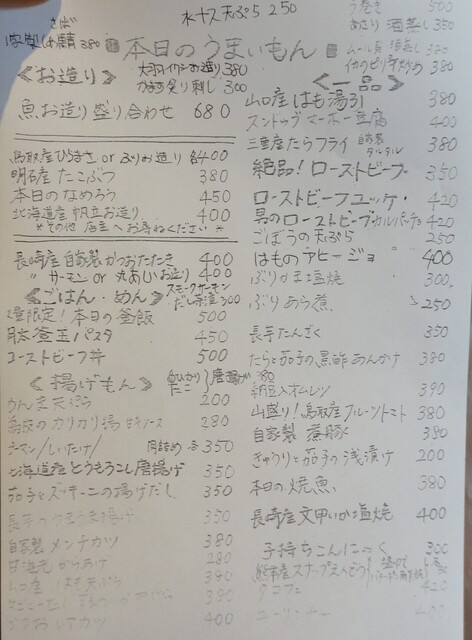 水ナス天ぷら 250
さば
380
本日のうまいもん
《お造り》
大羽イワシお造り 380
かます炙り刺し 300
魚お造り盛り合わせ 680
鳥取産ひらまさ or ぶりお造り 各400
明石産たこぶつ 380
本日のなめろう 450
北海道産帆立お造り 400
*その他 店主へお尋ねください*
長崎産自家製かつおたたき 400
〃 サーモン or 丸あじお造り 400
《ごはん・めん》
スモークサーモン
だし茶漬 300
限定!本日の釜飯 500
釜玉パスタ 450
ローストビーフ丼 500
《揚げもん》
唐揚げ
たこ
うんま天ぷら 200
鳥皮のカリカリ揚 280
ピーマン/しいたけ/ 肉詰め 各350
北海道産とうもろこし唐揚げ 350
茄子とズッキーニの揚げだし 350
長芋の 揚げ 350
自家製メンチカツ 380
からあげ 280
山口産 はも天ぷら 380
380
レアカツ 400
う巻き 500
あさり酒蒸し 350
ムール貝 酒蒸し 380
イカのピリ辛炒め 380
《一品》
山口産はも湯引 380
スンドゥブマーボー豆腐 400
三重産たらフライ 自家製タルタル 380
絶品!ローストビーフ 350
ローストビーフユッケ・ 420
男のローストビーフカルパッチョ 420
ごぼうの天ぷら 250
はものアヒージョ 400
ぶりかま塩焼 300
ぶりあら煮 250
長芋たんざく 350
たらと茄子の黒酢あんかけ 380
納豆入オムレツ 390
山盛り!鳥取産フルーツトマト 380
自家製 煮豚 380
きゅうりと茄子の浅漬け 200
本日の焼魚 380
長崎産文甲いか塩焼 400
子持ちこんにゃく 300
熊本産スナップえんどう
タコブツ 420
400